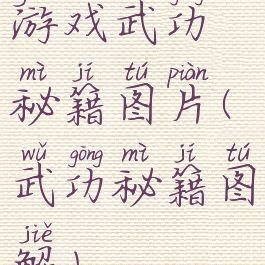 游戏武功
mì jí tú piàn
秘籍图片(
wǔ gōng mì jí tú
武功秘籍图
jiě
解)